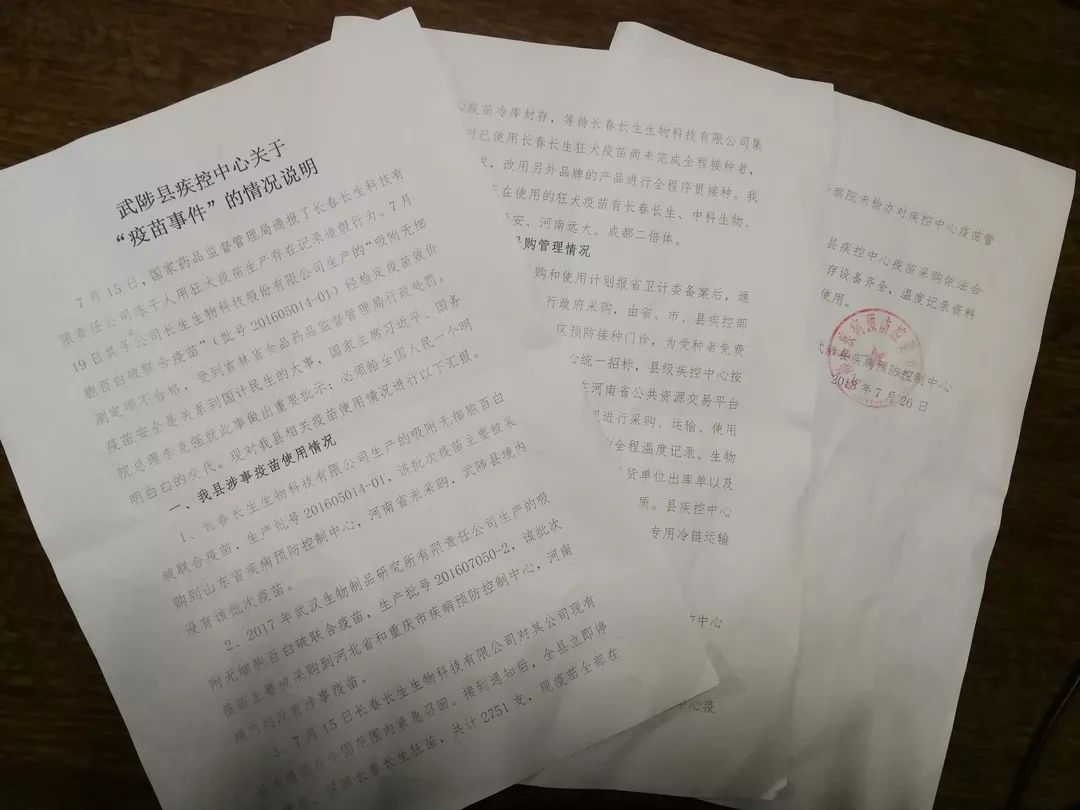 武陟县疾控中心关于
“疫苗事件”的情况说明
7月15日，国家药品监督管理局通报了长春长生科技有
限责任公司冻干人用狂犬疫苗生产存在记录造假行为。7月
19日其子公司长生生物科技股份有限公司生产的“吸附无细
胞百白破联合疫苗”（批号201605014-01）经检定疫苗效价
测定项不合格，受到吉林省食品药品监督管理局行政处罚。
疫苗安全是关系到国计民生的大事，国家主席习近平、国务
院总理李克强就此事做出重要批示：必须给全国人民一个明
明白白的交代。现对我县相关疫苗使用情况进行以下汇报。
一、我县涉事疫苗使用情况
1、长春长生生物科技有限公司生产的吸附无细胞百白
破联合疫苗，生产批号201605014-01，该批次疫苗主要被采
购到山东省疾病预防控制中心，河南省未采购，武陟县境内
没有该批次疫苗。
2、2017年武汉生物制品研究所有限责任公司生产的吸
附无细胞百白破联合疫苗，生产批号201607050-2，该批次
疫苗主要被采购到河北省和重庆市疾病预防控制中心，河南
境内均没有涉事疫苗。
3、7月15日长春长生生物科技有限公司对其公司现有
在全国范围内紧急召回。接到通知后，全县立即停
长春长生狂苗，共计2751支，现疫苗全部在
疫苗冷库封存，等待长春长生生物科技有限公司集
对已使用长春长生狂犬疫苗尚未完成全程接种者，
改用另外品牌的产品进行全程序贯接种。我
正在使用的狂犬疫苗有长春长生、中科生物、
安、河南远大、成都二倍体。
购管理情况
购和使用计划报省卫计委备案后，通
行政府采购，由省、市、县疾控部
区预防接种门诊，为受种者免费
心统一招标，县级疾控中心按
河南省公共资源交易平台
进行采购、运输、使用
全程温度记录、生物
货单位出库单以及
质。县疾控中心
专用冷链运输
中心
中心疫
察院未检办对疾控中心疫苗管
县疾控中心疫苗采购依法合
存设备齐全，温度记录资料
使用。
武陟县疾病预防控制中心
2018年7月26日
疾病预防控制